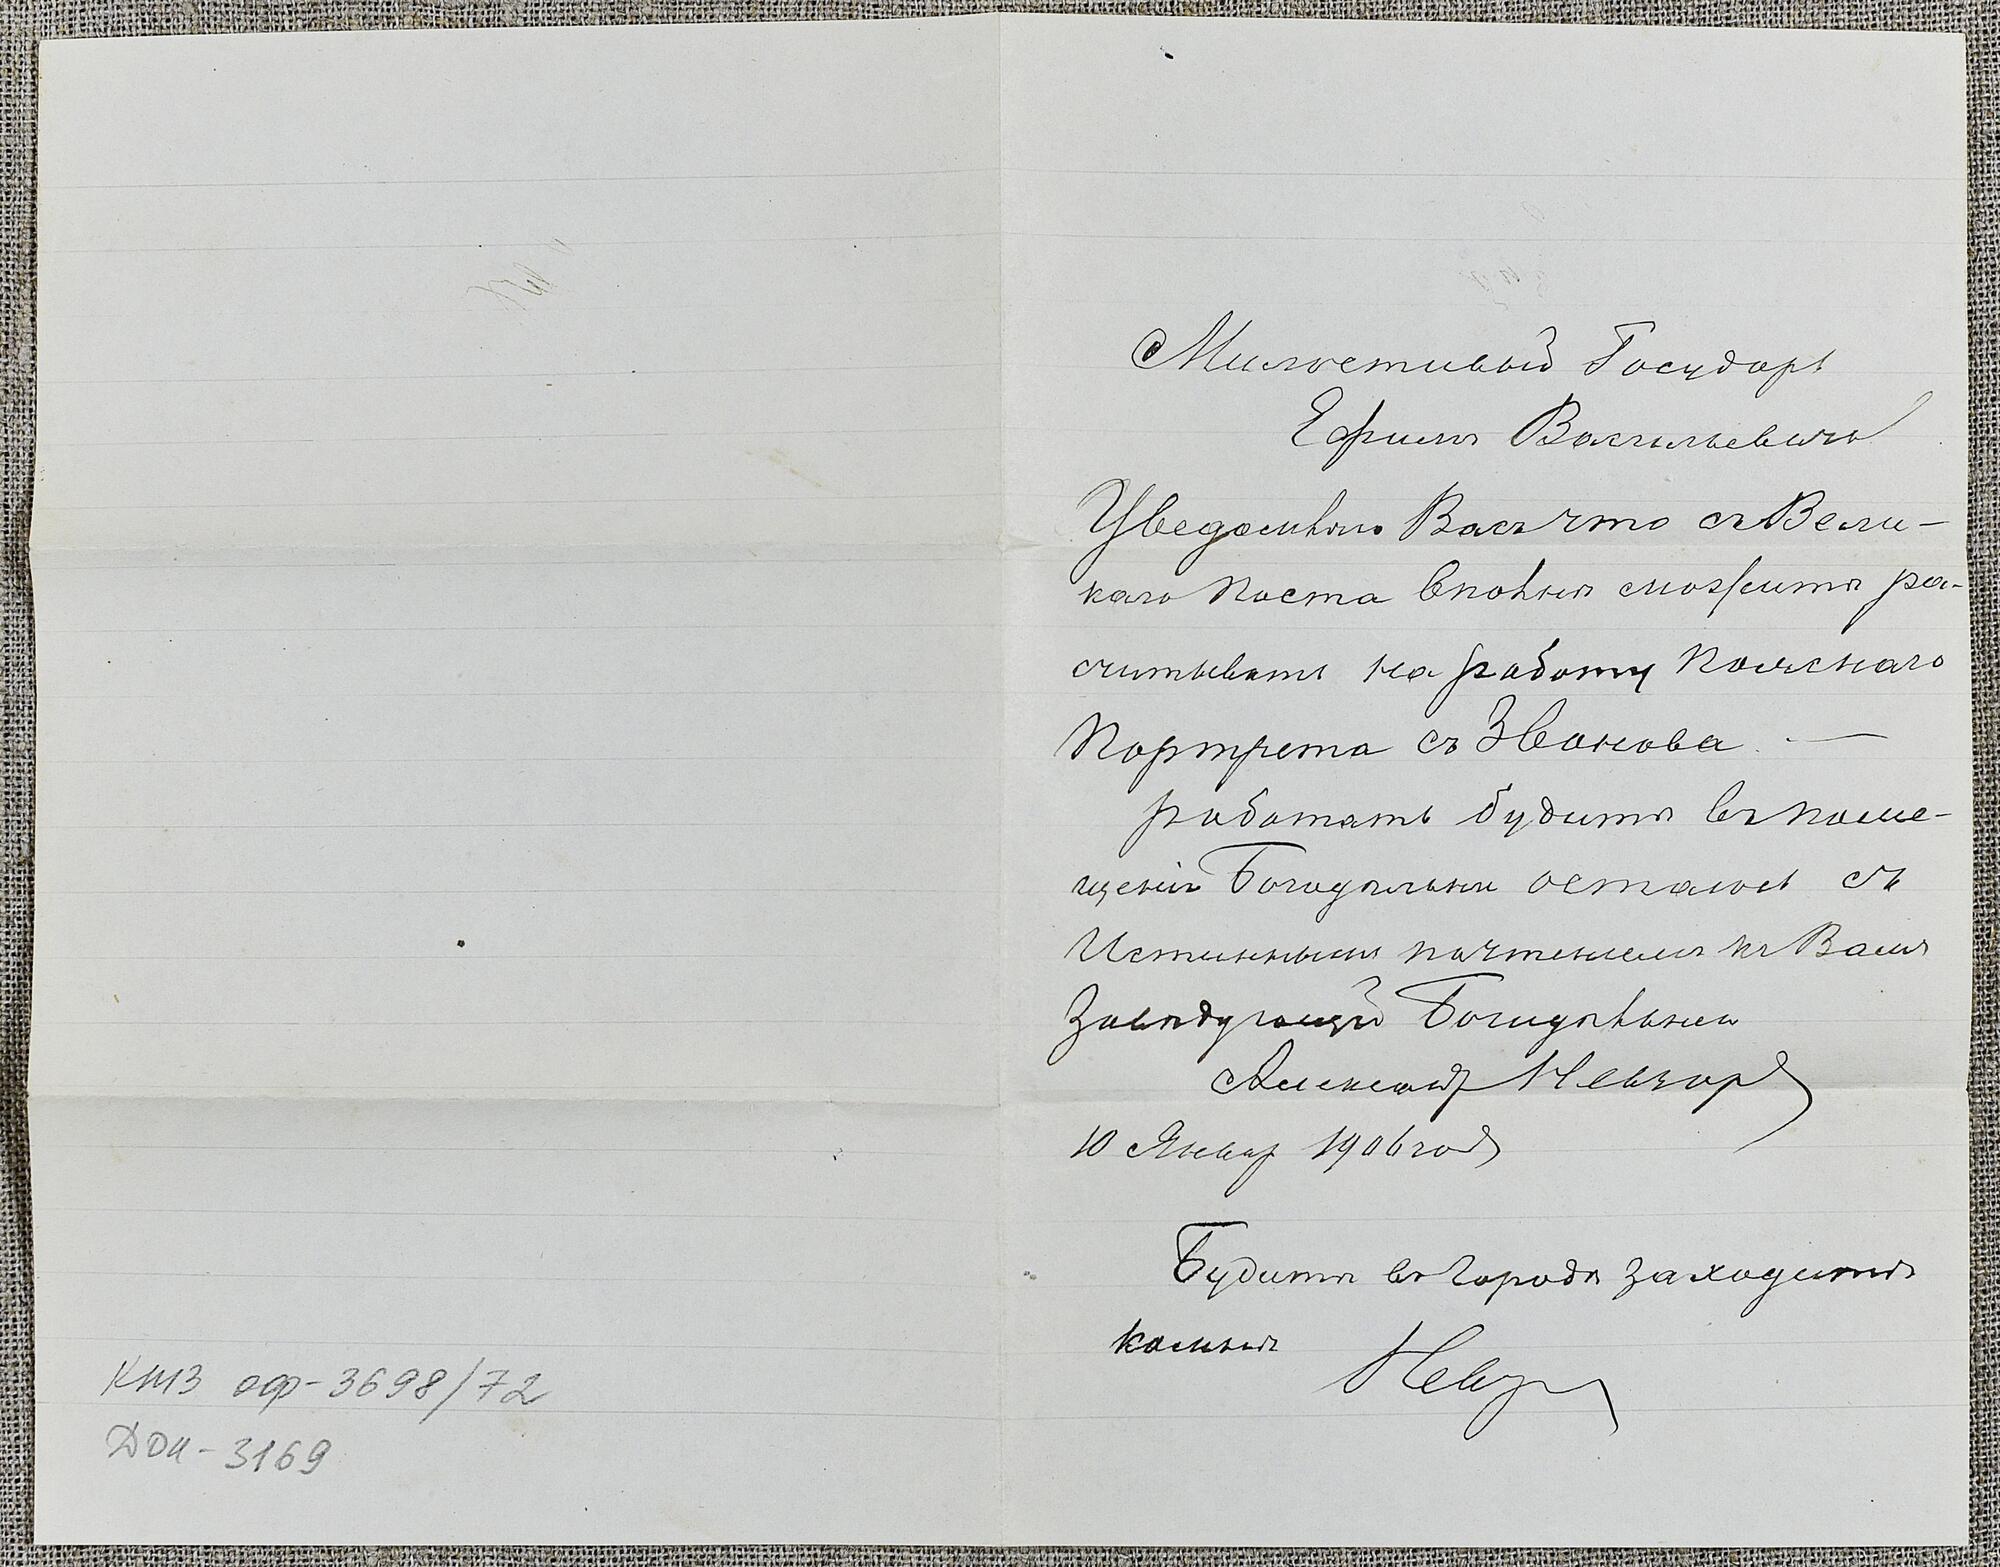 Милостивый Государь
Ефимъ Васильевичъ
Уведомляю Васъ что съ Вели-
каго поста вполнѣможитѣ ра-
считывать на работу Пояснаго
Портрета съ Званова. —
работать будитѣ въ поме-
щеніи Богадѣльни остаюсь съ
Истиннымъ почтениемъ къ Вамъ
Завѣдующій Богадѣльни
10 Январ 1906 год
Будитѣ въ городѣ заходитѣ
комнѣ
КМЗ оф-3698/72
ДОК-3169